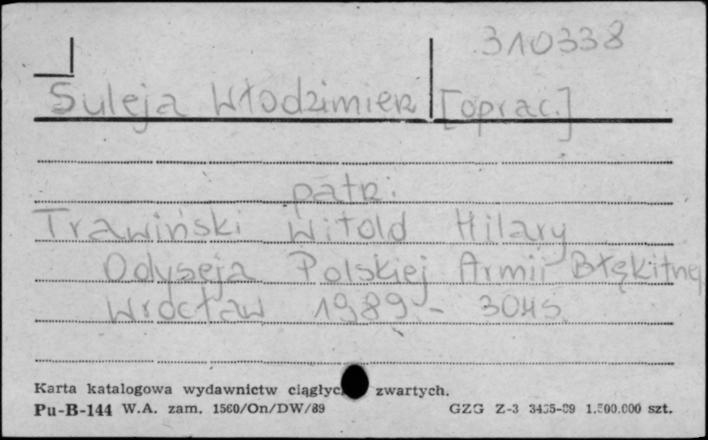 310338
Suleja Włodzimierz [oprac.]
patrz:
Trawiński Witold Hilary
Odyseja Polskiej Armii Błękitnej
Wrocław 1989 - 304 s.
Karta katalogowa wydawnictw ciągłyc zwartych.
Pu-B-144 W.A. zam. 1560/On/DW/89 GZG Z-3 1.500.000 szt.